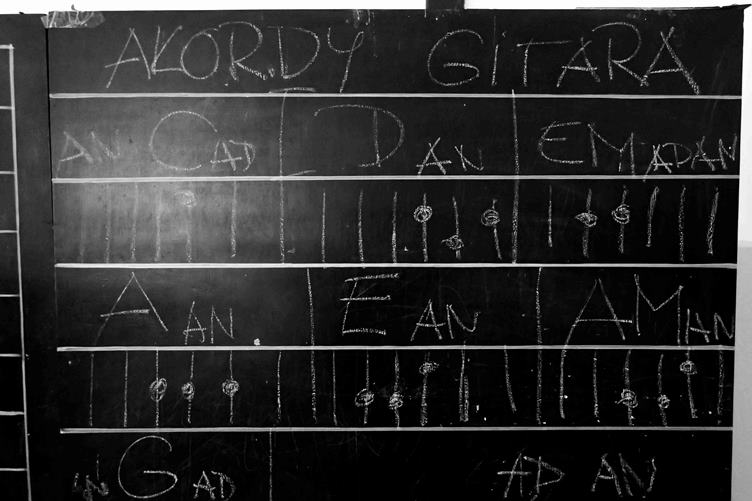 AKORDY GITARA
AN C AD D AN EM ADAN
A AN E AN AM AN
G AD AD AN